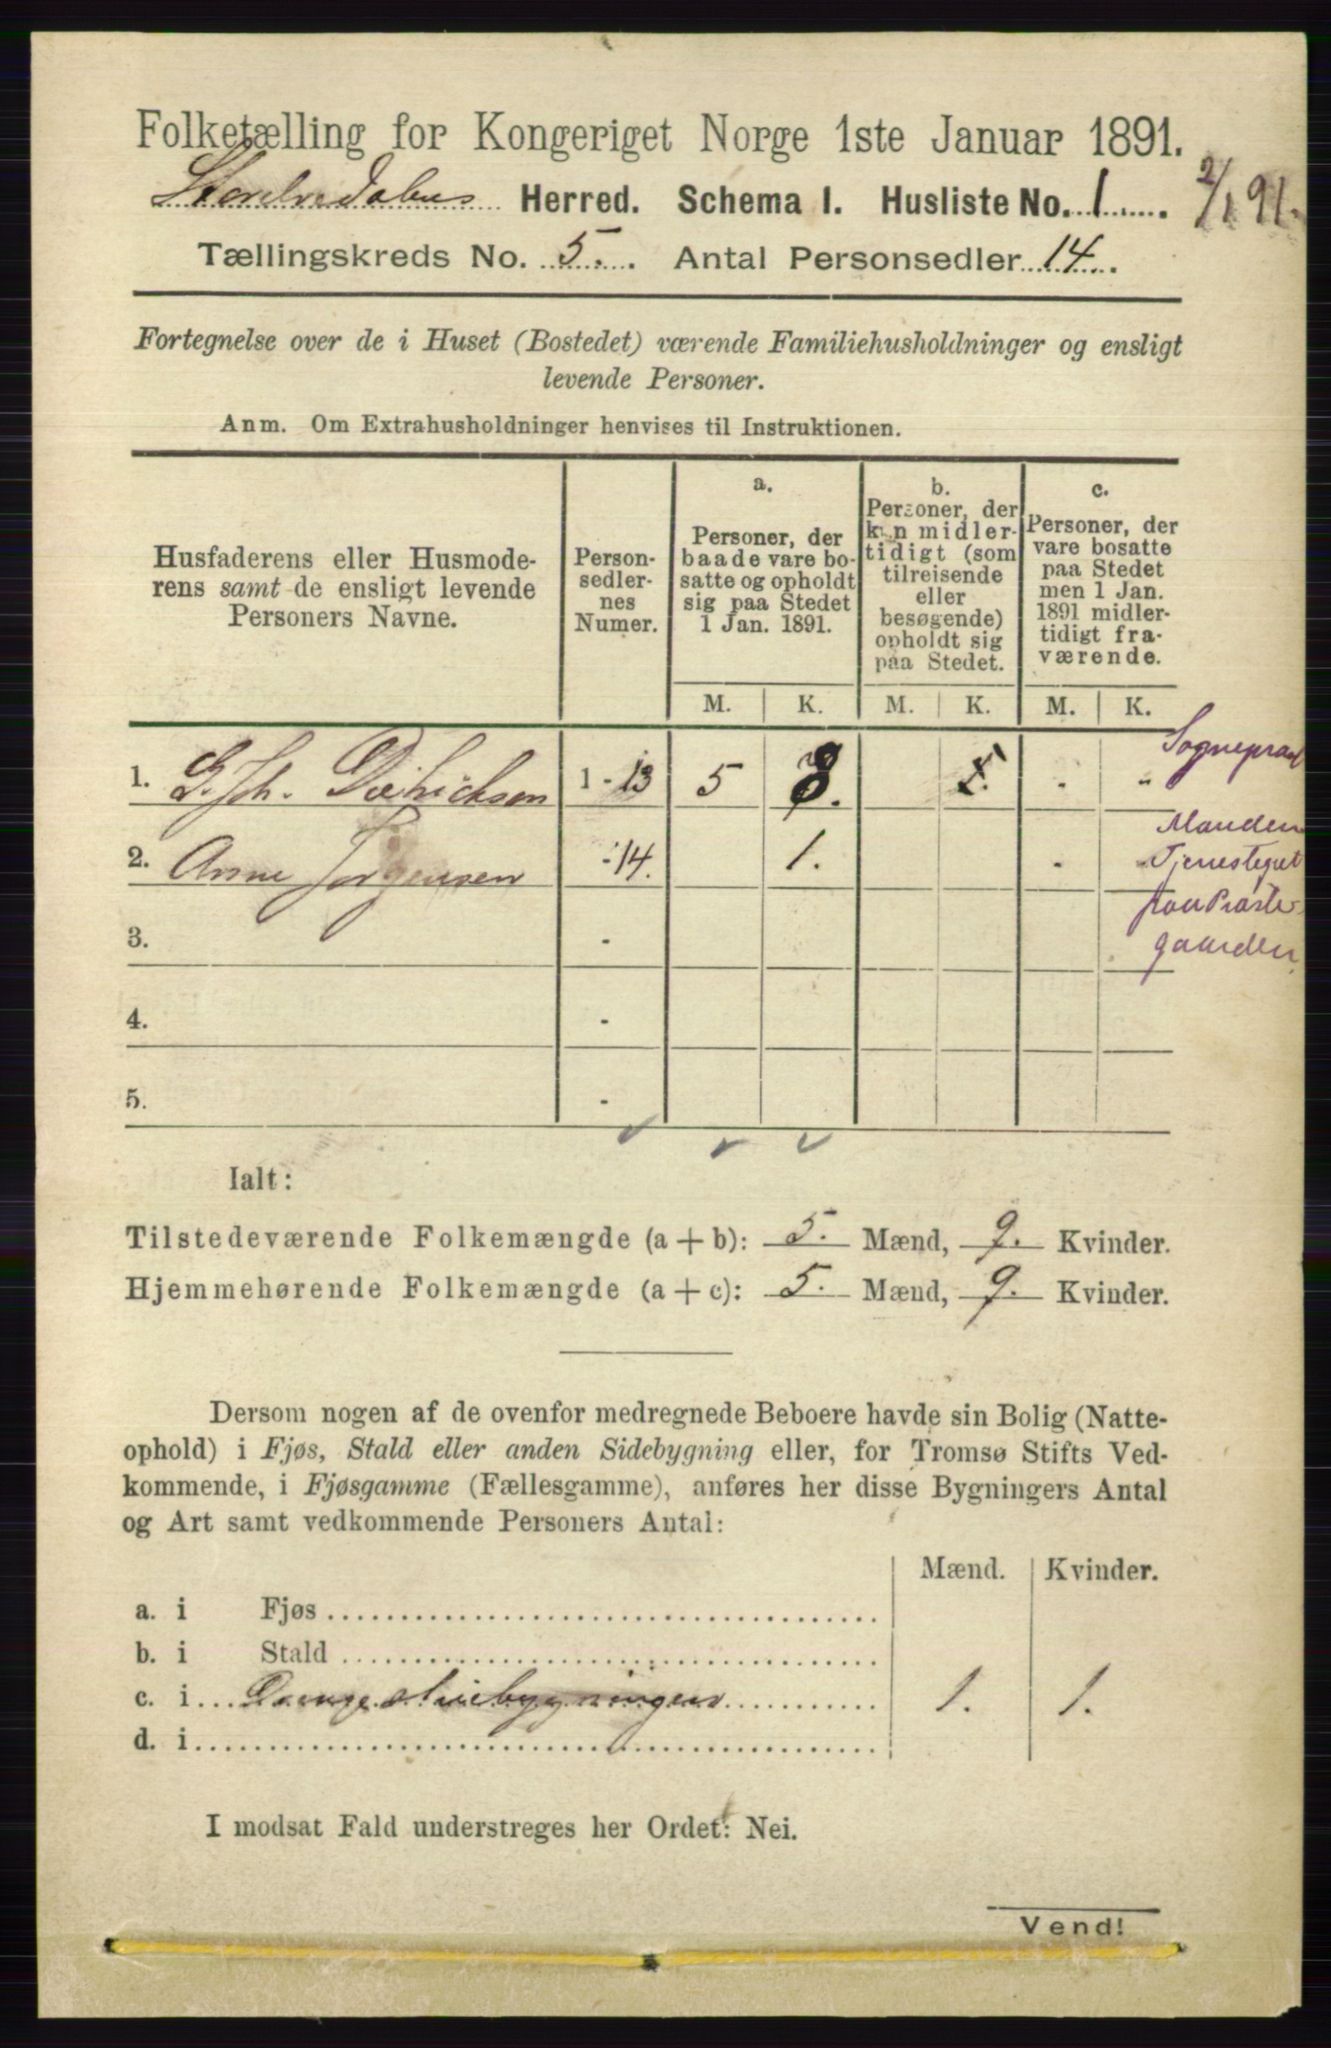 Folketælling for Kongeriget Norge 1ste Januar 1891.
Herred. Schema I. Husliste No. 1. 2/1 91.
Tællingskreds No. 5. Antal Personsedler 14.
Fortegnelse over de i Huset (Bostedet) værende Familiehusholdninger og ensligt
levende Personer.
Anm. Om Extrahusholdninger henvises til Instruktionen.
Husfaderens eller Husmode-
rens samt de ensligt levende
Personers Navne.
Person-
sedler-
nes
Numer.
a.
Personer, der
baade vare bo-
satte og opholdt
sig paa Stedet
1 Jan. 1891.
b.
Personer, der
kun midler-
tidigt (som
tilreisende
eller
besøgende)
opholdt sig
paa Stedet.
c.
Personer, der
vare bosatte
paa Stedet
men 1 Jan.
1891 midler-
tidigt fra-
værende.
M. K. M. K. M. K.
1. G. Joh. Dietrichson 1 - 13 5 8. 1. - "
2. Anne Jørgensen - 14. 1. - "
3. -
4. -
5. -
Manden
Tjenestegut
paa Præste-
gaarden.
Ialt:
Tilstedeværende Folkemængde (a + b): 5. Mænd, 9. Kvinder.
Hjemmehørende Folkemængde (a + c): 5. Mænd, 9. Kvinder.
Dersom nogen af de ovenfor medregnede Beboere havde sin Bolig (Natte-
ophold) i Fjøs, Stald eller anden Sidebygning eller, for Tromsø Stifts Ved-
kommende, i Fjøsgamme (Fællesgamme), anføres her disse Bygningers Antal
og Art samt vedkommende Personers Antal:
Mænd. Kvinder.
a. i Fjøs
b. i Stald
c. i Drengestuebygningen 1. 1.
d. i
I modsat Fald understreges her Ordet: Nei.
Vend!